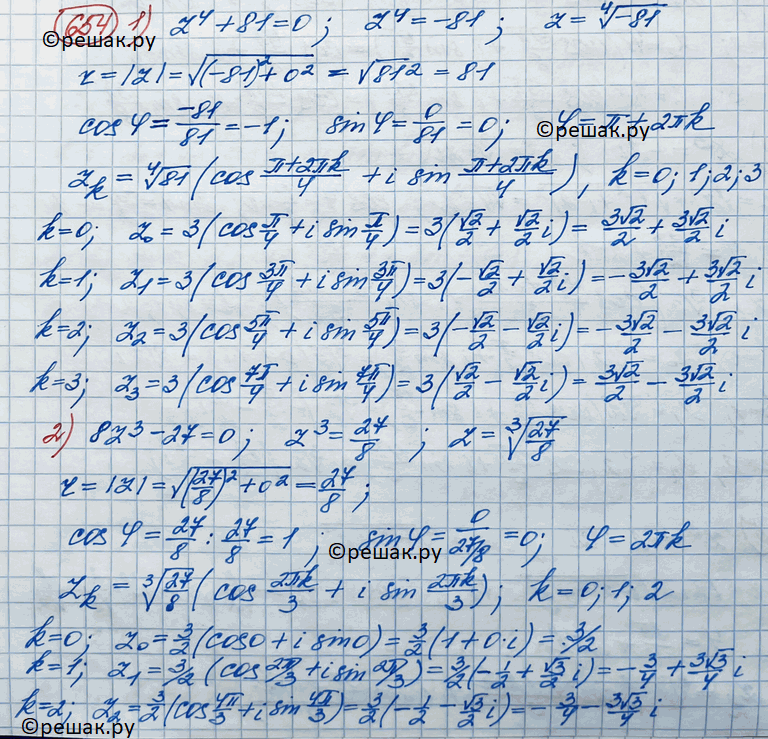 654 1) z⁴ + 81 = 0; z⁴ = -81; z = ⁴√-81
©решак.ру
r = |z| = √((-81)² + 0²) = √81² = 81
cos φ = -81/81 = -1; sin φ = 0/81 = 0; φ = π + 2πk
©решак.ру
z_k = ⁴√81 (cos (π+2πk)/4 + i sin (π+2πk)/4), k = 0; 1; 2; 3
k=0; z₀ = 3(cos π/4 + i sin π/4) = 3(√2/2 + √2/2 i) = 3√2/2 + 3√2/2 i
k=1; z₁ = 3(cos 3π/4 + i sin 3π/4) = 3(-√2/2 + √2/2 i) = -3√2/2 + 3√2/2 i
k=2; z₂ = 3(cos 5π/4 + i sin 5π/4) = 3(-√2/2 - √2/2 i) = -3√2/2 - 3√2/2 i
k=3; z₃ = 3(cos 7π/4 + i sin 7π/4) = 3(√2/2 - √2/2 i) = 3√2/2 - 3√2/2 i
2) 8z³ - 27 = 0; z³ = 27/8; z = ³√(27/8)
r = |z| = √((27/8)² + 0²) = 27/8;
cos φ = 27/8 : 27/8 = 1; sin φ = 0/(27/8) = 0; φ = 2πk
©решак.ру
z_k = ³√(27/8) (cos 2πk/3 + i sin 2πk/3); k = 0; 1; 2
k=0; z₀ = 3/2 (cos 0 + i sin 0) = 3/2 (1 + 0·i) = 3/2
k=1; z₁ = 3/2 (cos 2π/3 + i sin 2π/3) = 3/2 (-1/2 + √3/2 i) = -3/4 + 3√3/4 i
k=2; z₂ = 3/2 (cos 4π/3 + i sin 4π/3) = 3/2 (-1/2 - √3/2 i) = -3/4 - 3√3/4 i
©решак.ру